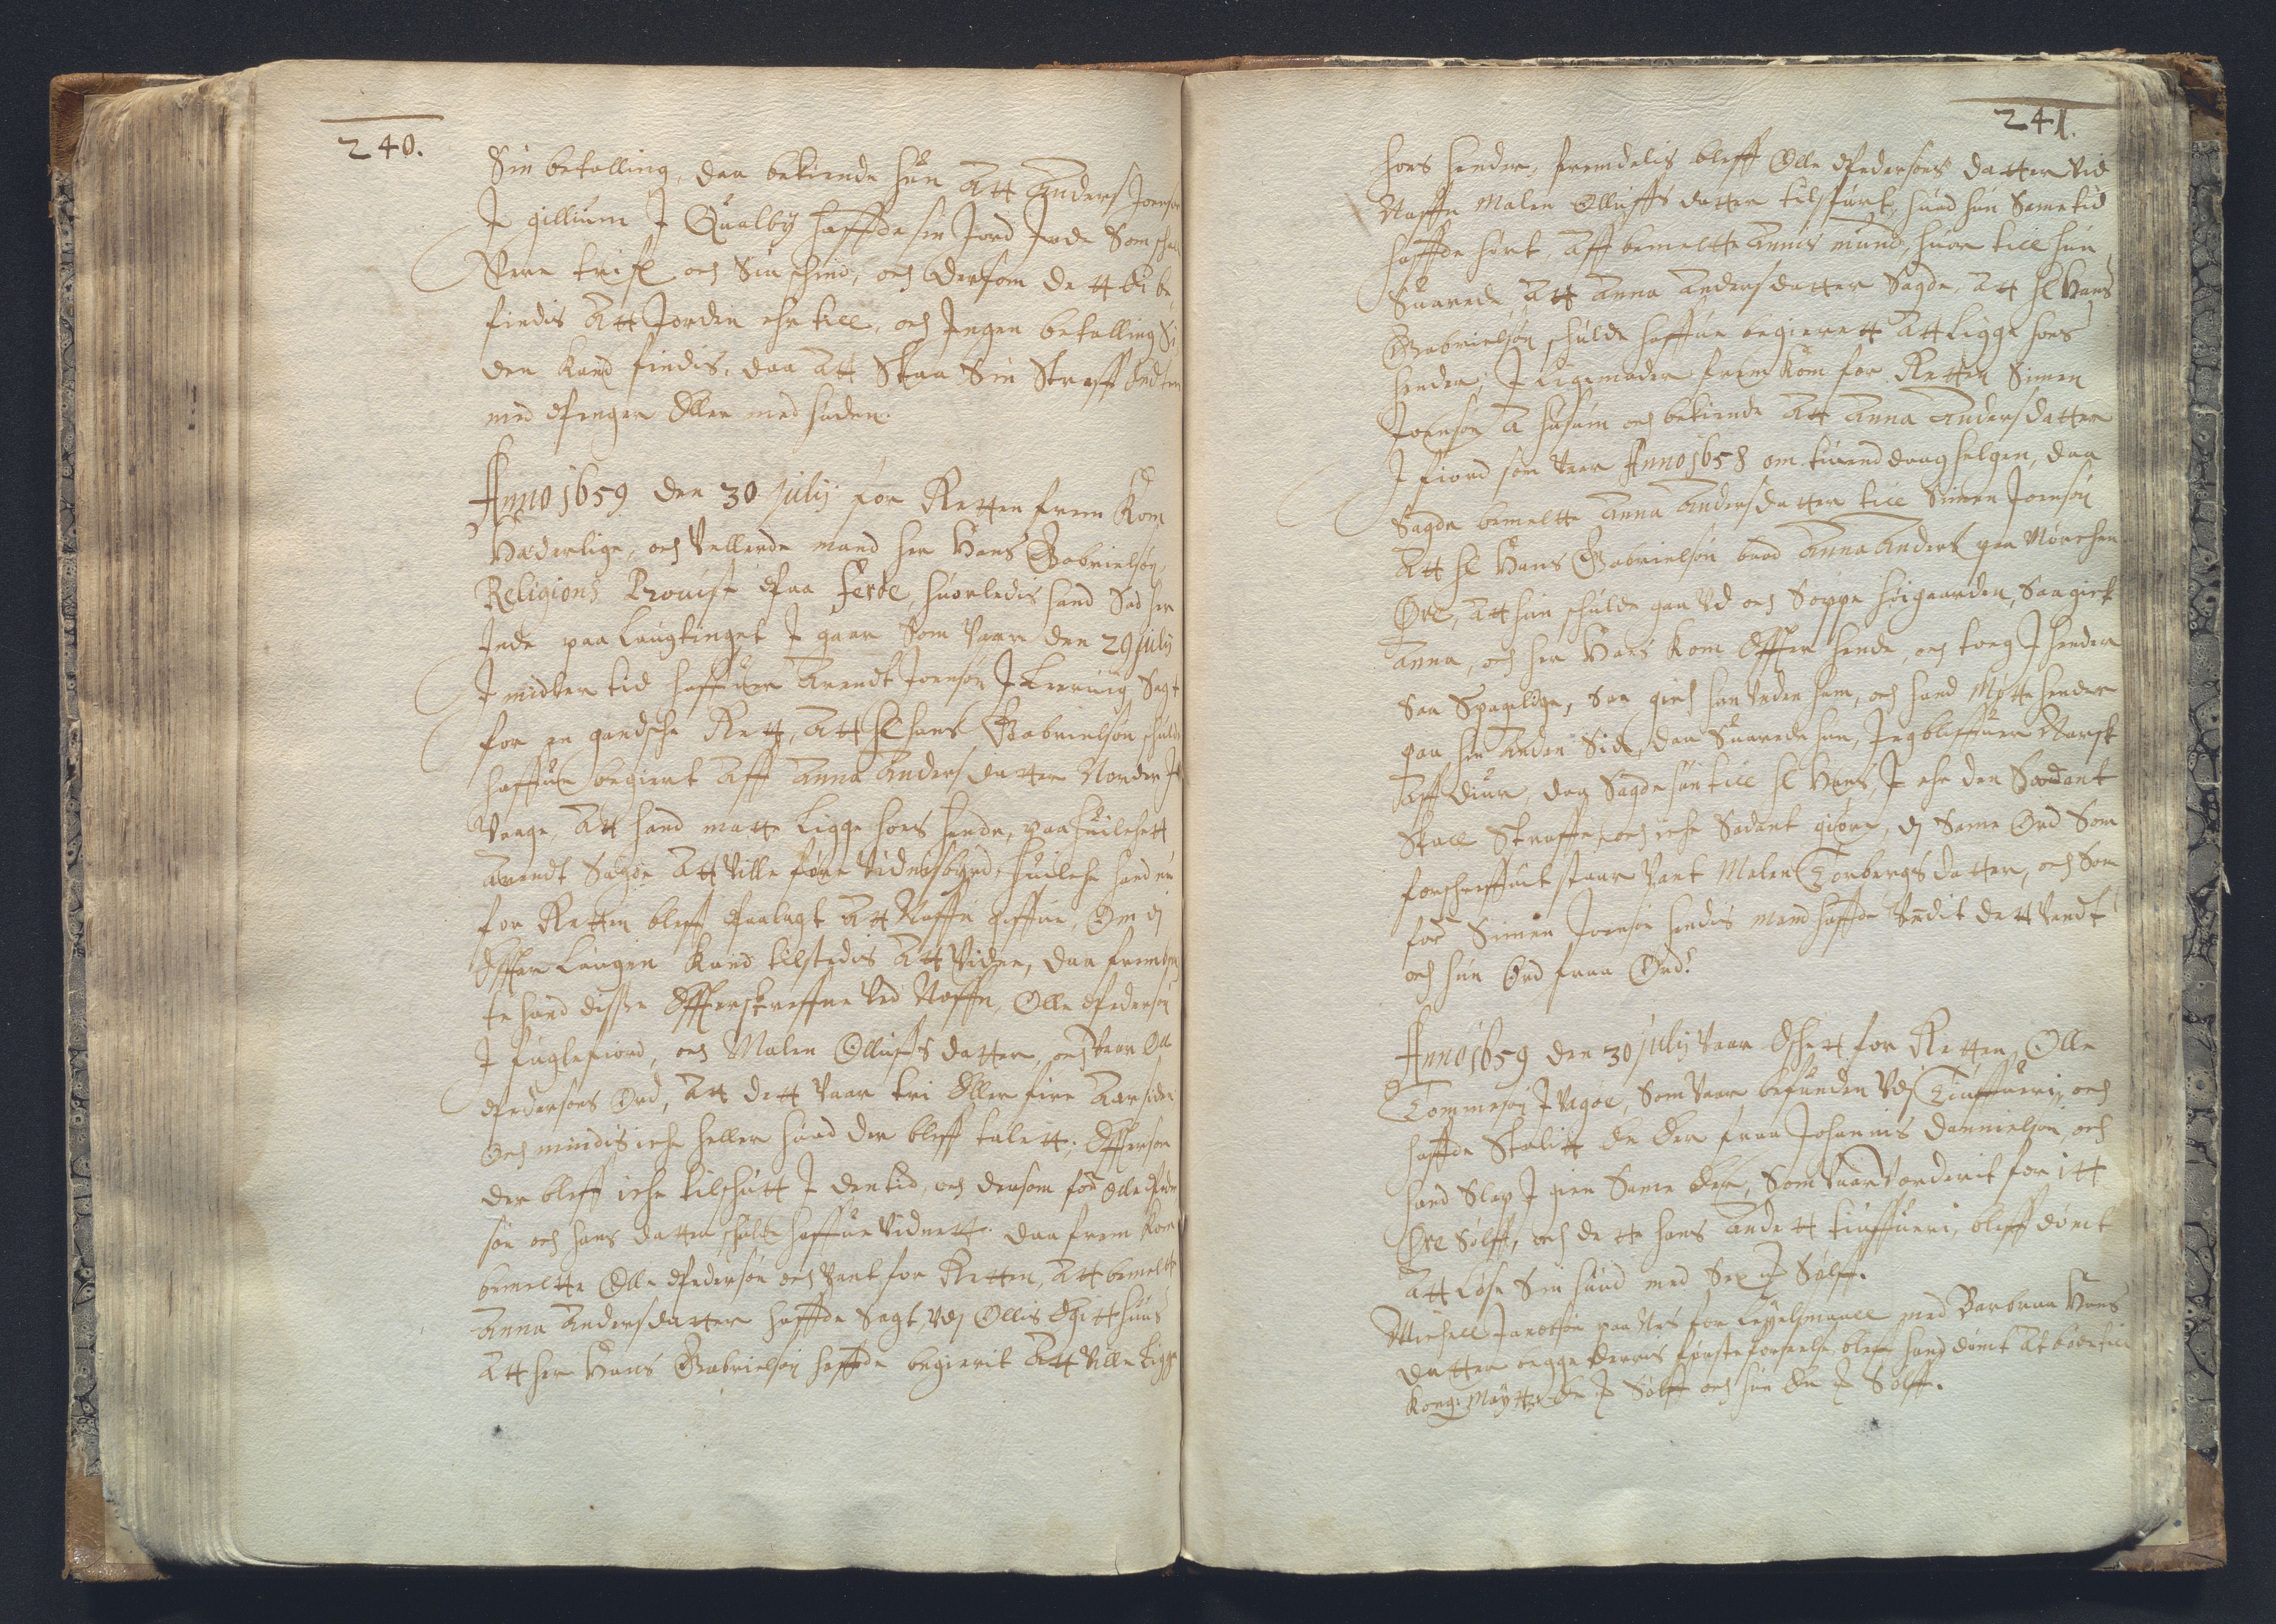 240.
Sin betalling, daa bekiende hun Att Anders Joensøn
J gillium J Qualbÿ haffde sin Jord Jnde Som schal
Vere trist och Sin schind, och dersom dett ei be,
findis Att Jorden ehr till, och Jngen betalling Si
den kand findis, daa Att Staa Sin Straff Endten
med Penger Eller med huden.
Anno 1659 den 30 Julij for Retten frem Kom
Hæderlige, och Vellerde mand her Hans Gabrielsøn,
Religions Prouist Paa ferøe, huorledis hand Sad her
Jnde paa Laugtinget J gaar Som Vaar den 29 julij
J midler tid haffuer Arendt Joensøn J Lerruig Sagt
for en gandsche Rett, Att hl hans Gabrielsøn schulde
haffue begiert Aff Anna Anders datter Norder J
Vaage, Att hand matte Ligge hoes hende, paa huilchett
Arendt Sagde Att Ville føre Vidnesbyrd, huilche hand nu
for Retten bleff Paalagt Att Naffn giffue, Om di
Effter Laugen kand tilstedis Att Vidne, daa frembsen
te hand disse Effterskreffne Ved Naffn, Olle Pedersøn
J fuglefiord, och Malen Olluffs datter, och Vaar Olle
Pedersøns Ord, Att dett Vaar tri Eller fire Aar siden
Och mindis iche heller huad der bleff talett, Effterson
der bleff iche tilschutt J den tid, och dersom for Olle Peder
søn och hans datter schulde haffue Vidnett. daa frem kom
bemeltte Olle Pedersøn och Vant for Retten, Att bemelte
Anna Andersdatter haffde Sagt, Vdj Ollis Egitt huus
Att her Hans Gabrielsøn haffde begierit Att Ville Ligge
241.
hoes hender, fremdelis bleff Olle Pedersøns datter Vid
Naffn Malen Olluffs datter tilspurt, huad hun Sametid
haffde hørt, Aff bemeltte Annis mund, huor till hun
Suarede, Att Anna Andersdatter Sagde, Att hl Hans
Gabrielsøn schulde haffue begierett Att Ligge hoes
hender, J ligemader frem kom for Retten Simen
Joensøn A husum och bekiende Att Anna Andersdatter
J fiord som Vaar Anno 1658 om tuend daag helgen, daa
Sagde bemeltte Anna Andersdatter till Simen Joensøn
Att hl Hans Gabrielsøn baad Anna Anders paa Nørehen
Øre, Att hun schulde gaa Vd och Soppe høigaarden, Saa gick
Anna, och her Hans kom Effter hende, och toeg J hender
Saa Spagelige, Saa gich hun Vnden ham, och hand Møtte hender
paa hin Anden Side, daa Suarede hun, Jeg bliffuer Varsk
Aff Eder, dog Sagde hun till hl Hans, J ehr den Saadant
Skall Straffe, och iche Sadant giøre, dj Same Ord Som
forschreffuit staar Vant Malen Torbergs datter, och Som
for Simen Joensøn hendis mand haffde Vedit dett Vendt
och hun Ord fraa Ord.
Anno 1659 den 30 julij Vaar Eschett for Retten, Olle
Tommesøn J Vagøe, Som Vaar befunden Vdj Tiuffueri, och
haffde Stolitt En Ber fraa Johannis Dannielsøn, och
hand Slap J gien Same Ber, Som Vaar Vorderit for itt
Øre Sølff, och dette hans Andett tiuffueri, bleff dømt
Att Løse Sin hud med Sex # Sølff.
Michell Jacobsøn paa Nes for Leyelsmaall med Barbraa Hans
datter begge derris første forseelse, bleff hand dømt At bøde till
Kong: Maytt En # Sølff och hun En # Sølff.